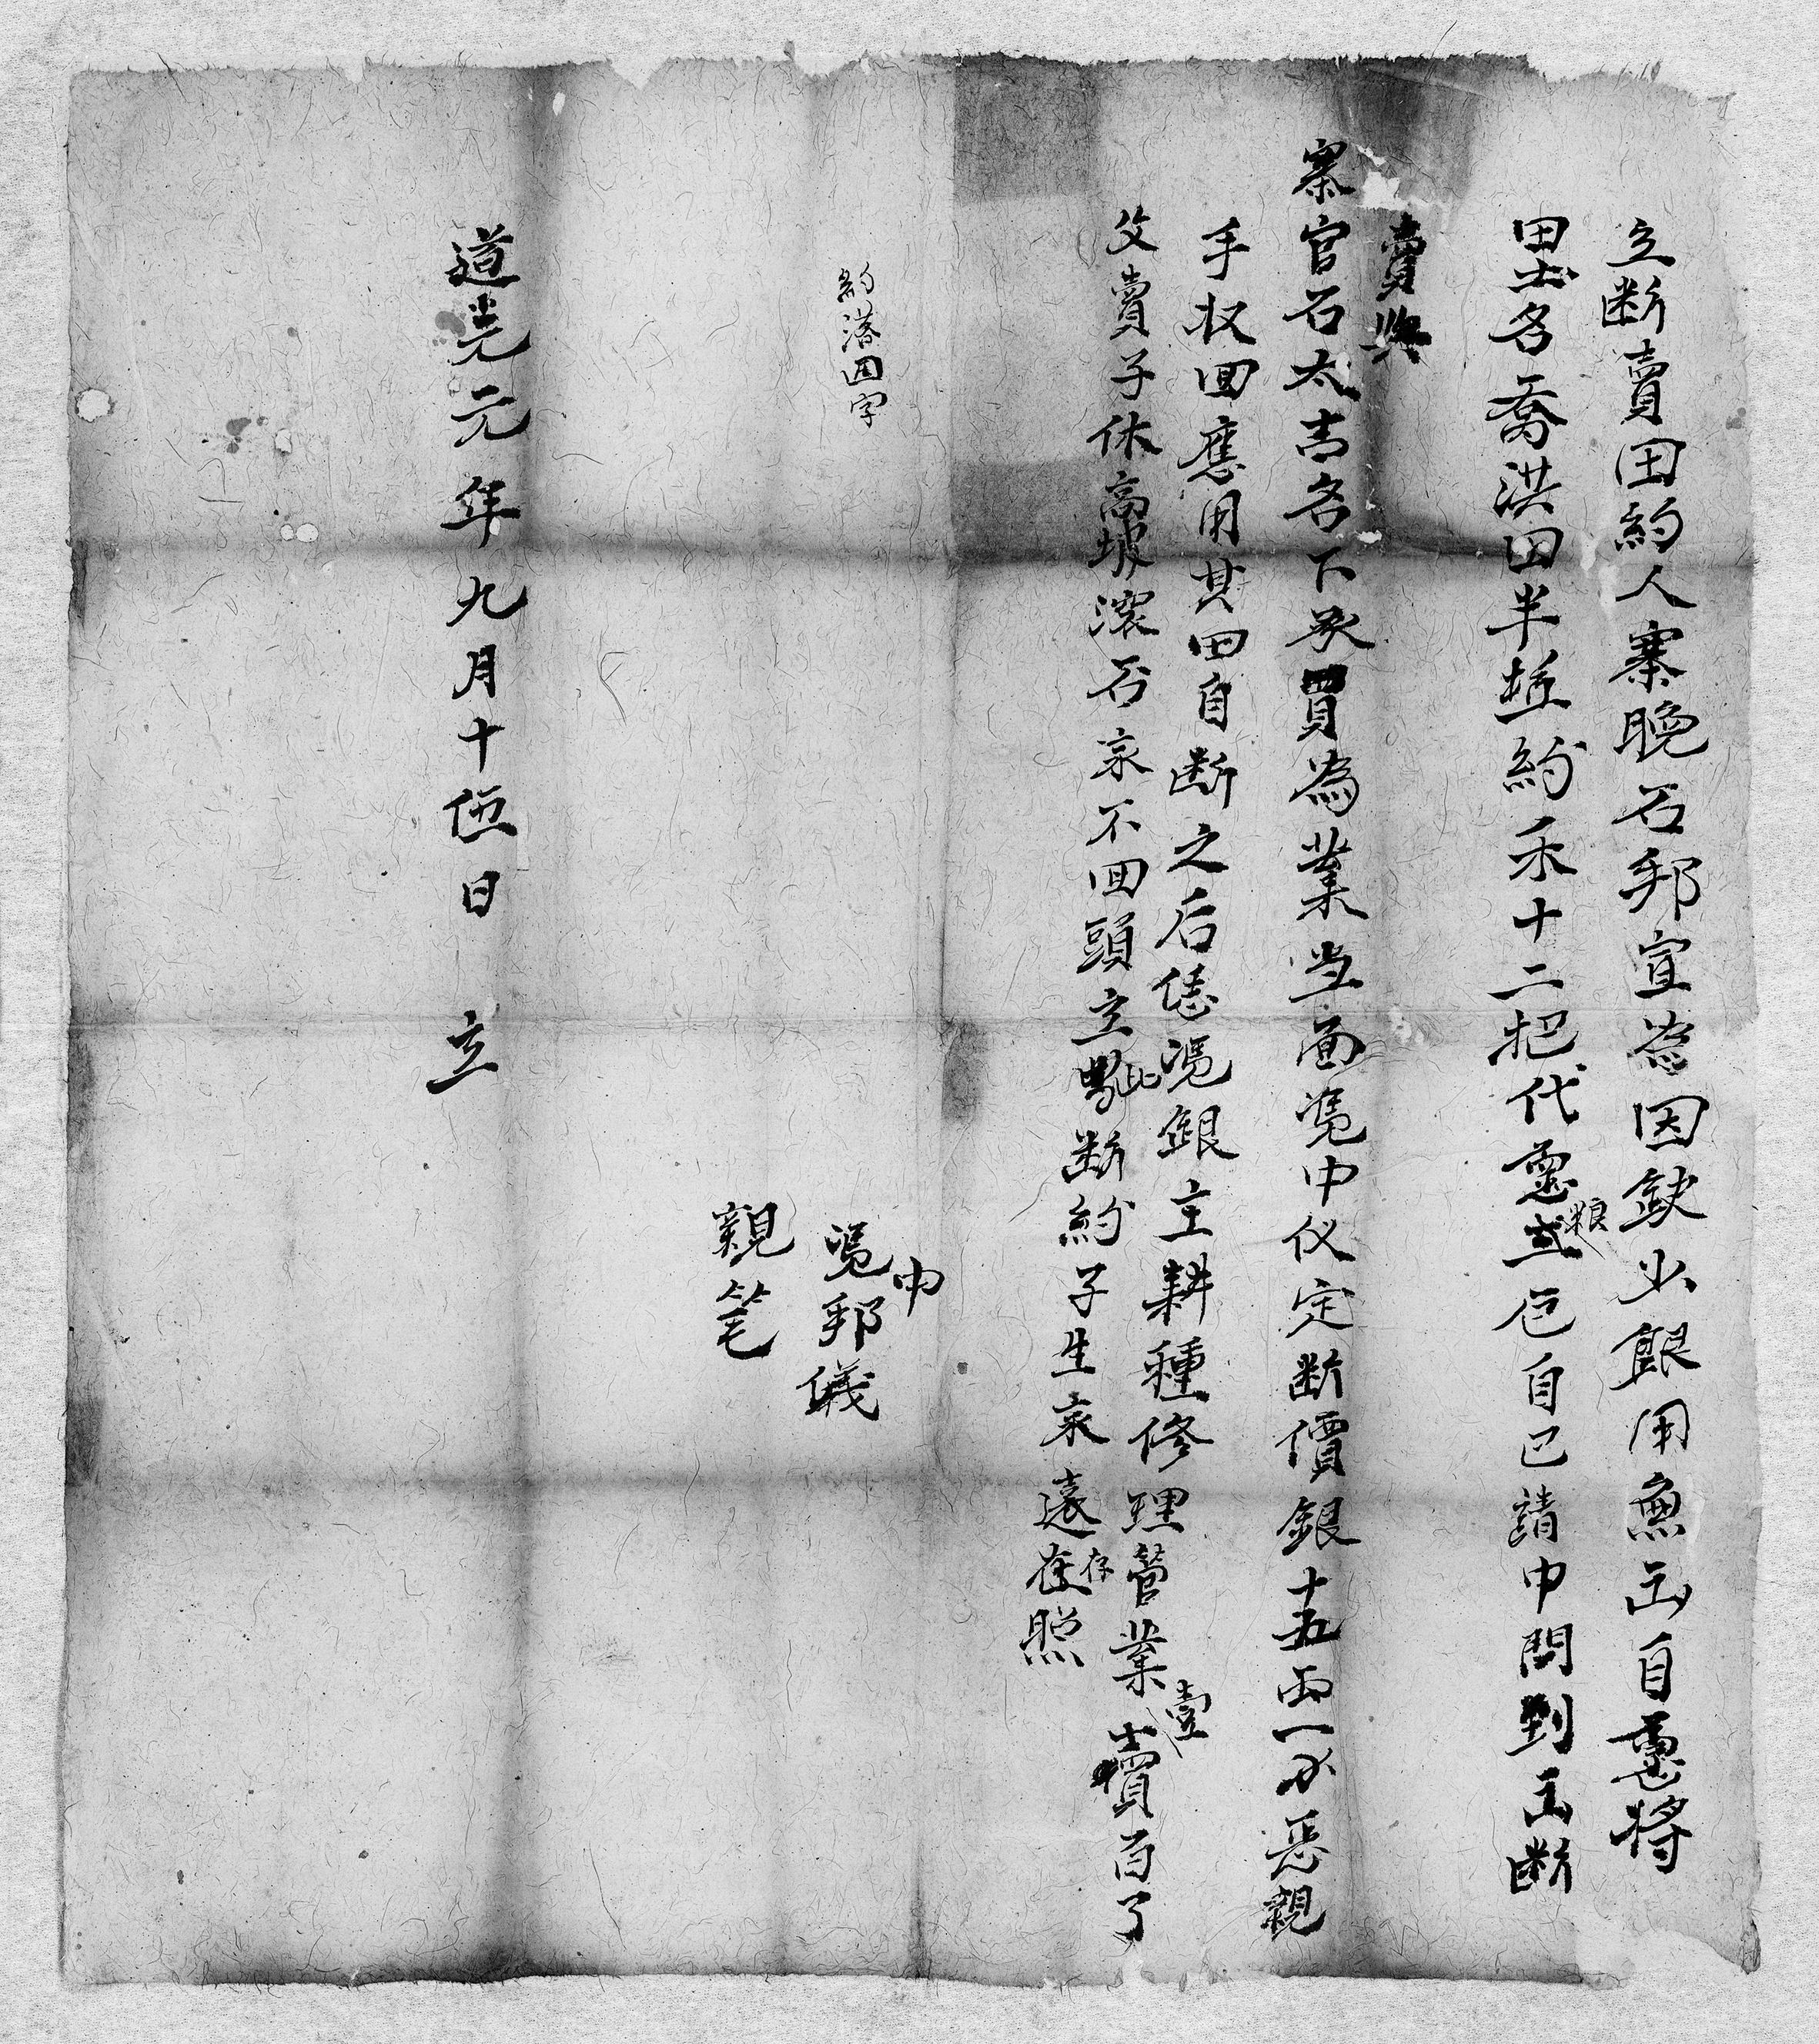 立断賣田約人寨晚石邦宜為因缺少銀用無出自愿將
田土名喬洪田半坵約禾十二把代粮自己請中問到出断
賣與
寨官石太吉名下承買為業当面凴中仪定断價銀十五両一分恶親
手收回應用其田自断之后凴銀主耕種修理管業壹賣百了
父賣子休高坡滚石永不回頭立此断約子生永遠存照
約落四字
中
凴邦儀
親笔
道光元年九月十伍日 立